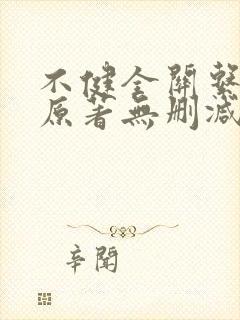 不健全關繫
原著無刪減
辛聞